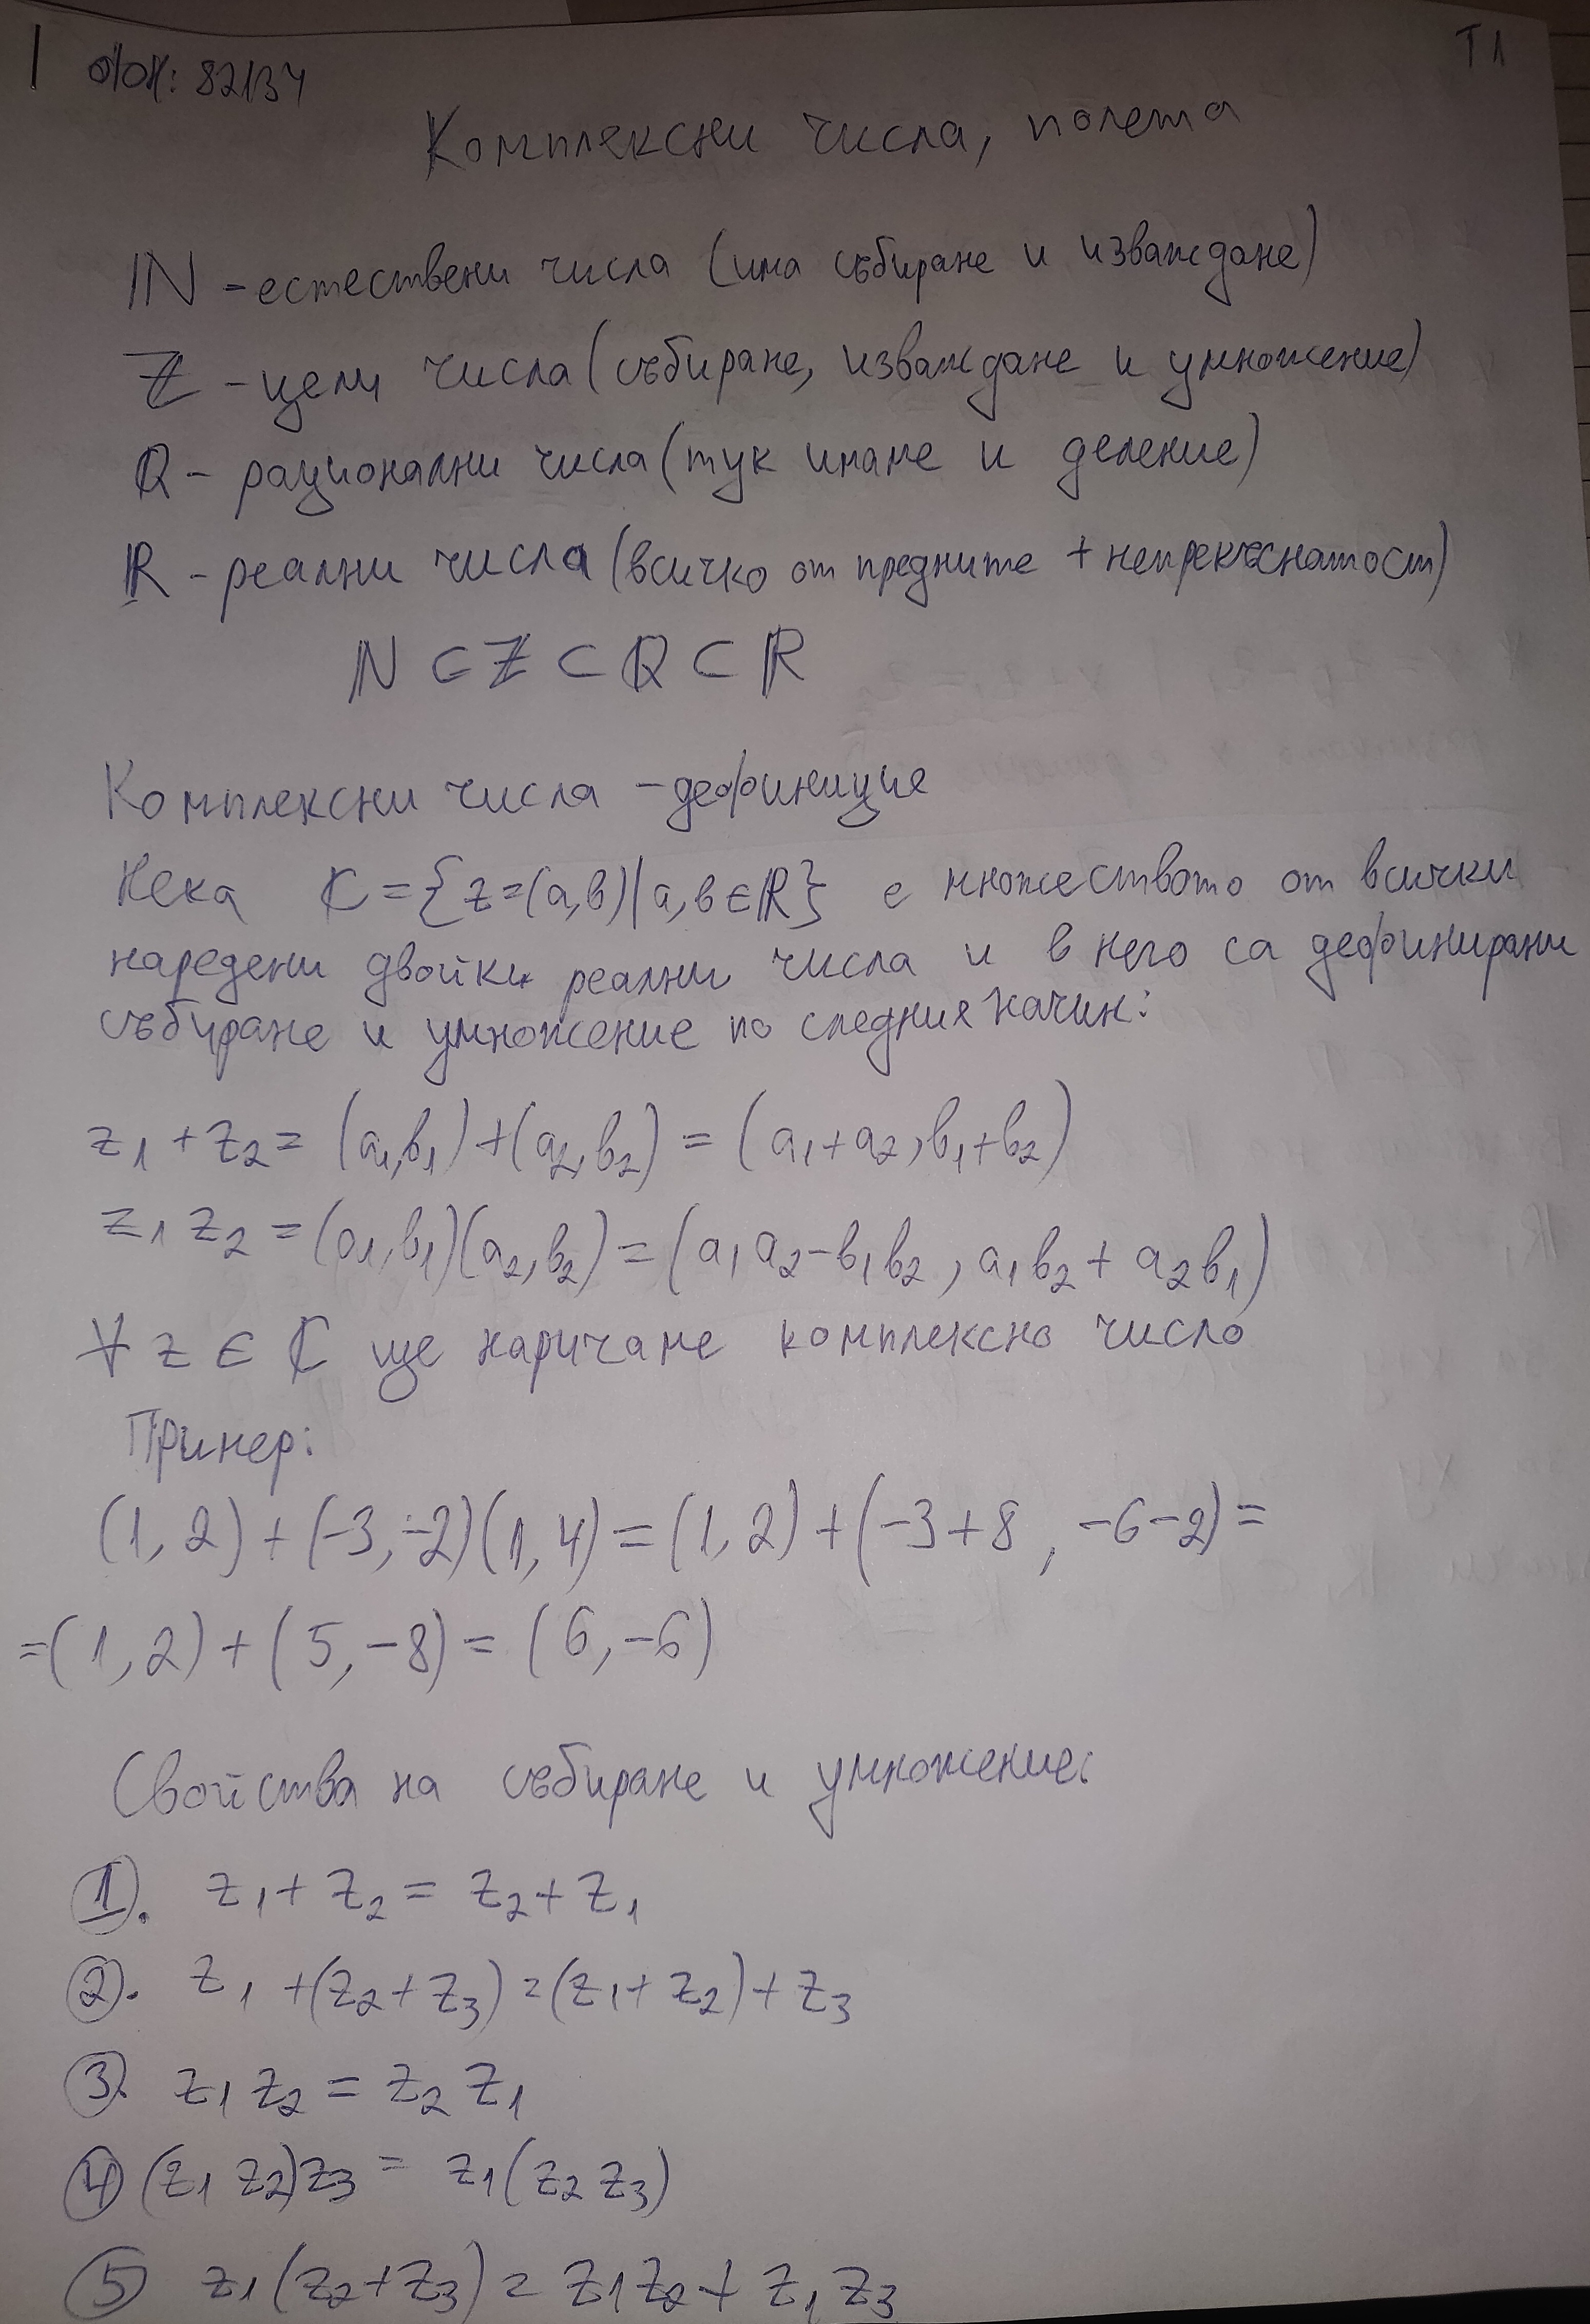 T1
82134
Комплексни числа, полета
ℕ - естествени числа (има събиране и изваждане)
ℤ - цели числа (събиране, изваждане и умножение)
ℚ - рационални числа (тук имаме и деление)
ℝ - реални числа (всичко от предните + непрекъснатост)
ℕ ⊂ ℤ ⊂ ℚ ⊂ ℝ
Комплексни числа - дефиниция
Нека ℂ = {z = (a, b) | a, b ∈ ℝ} е множеството от всички
наредени двойки реални числа и в него са дефинирани
събиране и умножение по следния начин:
z₁ + z₂ = (a₁, b₁) + (a₂, b₂) = (a₁ + a₂, b₁ + b₂)
z₁ z₂ = (a₁, b₁)(a₂, b₂) = (a₁ a₂ - b₁ b₂, a₁ b₂ + a₂ b₁)
∀ z ∈ ℂ ще наричаме комплексно число
Пример:
(1, 2) + (-3, -2)(1, 4) = (1, 2) + (-3 + 8, -6 - 2) =
= (1, 2) + (5, -8) = (6, -6)
Свойства на събиране и умножение:
1. z₁ + z₂ = z₂ + z₁
2. z₁ + (z₂ + z₃) = (z₁ + z₂) + z₃
3. z₁ z₂ = z₂ z₁
4 (z₁ z₂) z₃ = z₁ (z₂ z₃)
5 z₁ (z₂ + z₃) = z₁ z₂ + z₁ z₃